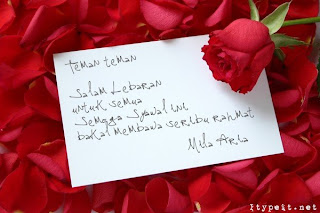 Teman teman
Salam Lebaran
untuk semua
Semoga Syawal ini
bakal membawa seribu rahmat
Mila Arla
Itypeit.net